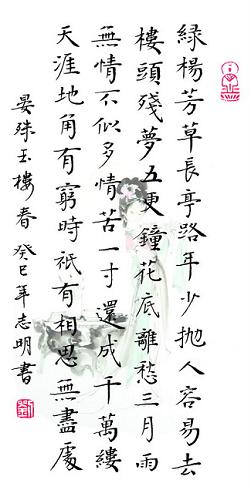 綠楊芳草長亭路年少抛人容易去
樓頭殘夢五更鐘花底離愁三月雨
無情不似多情苦一寸還成千萬縷
天涯地角有窮時衹有相思無盡處
晏殊玉樓春 癸巳年志明書
劉